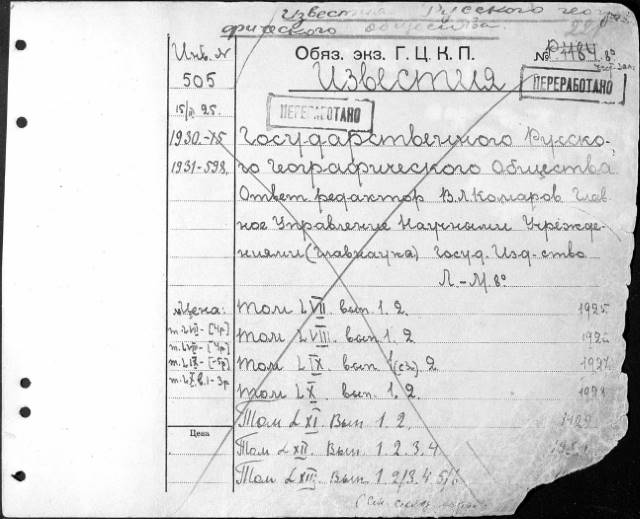 Известия Русского геогра-
фического общества.
Инв. N
Обяз. экз. Г. Ц. К. П.
№ Р1184 8°
505
Известия
ПЕРЕРАБОТАНО
15/ 25.
ПЕРЕРАБОТАНО
1930.-75
Государственного Русско-
1931-598.
го Географического Общества
Ответ. редактор В.Л. Комаров Глав
ное Управление Научными Учрежде-
ниями (Главнаука) Госуд. Изд-ство
Л.-М. 8°
Цена:
Том LVII. вып. 1. 2. 1925
т. LVII- [4р]
Том LVIII. вып. 1. 2. 1926
т. LVIII- [4р]
т. LIX- [-5р]
Том LIX вып. 2 1927
т. LX, в. 1-3р
Том LX вып. 1. 2. 1928
Том LXI. Вып 1. 2. 1929
Цена
Том LXII. Вып. 1. 2. 3. 4
Том LXIII. Вып. 1. 2/3. 4. 5/6
(См. след.